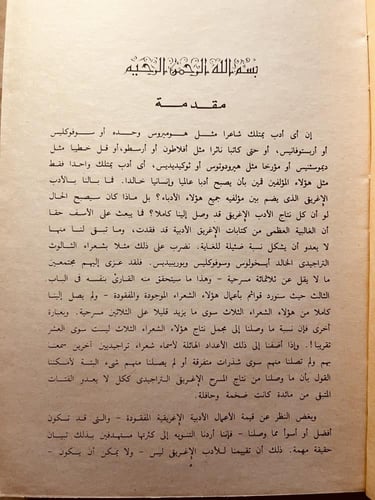 بسم الله الرحمن الرحيم
مقدمة
إن أى أدب يمتلك شاعرا مثل هوميروس وحده أو سوفوكليس
أو أريستوفانيس، أو حتى كاتبا ناثرا مثل أفلاطون أو أرسطو، أو قل خطيبا مثل
ديموسثنيس أو مؤرخا مثل هيرودوتوس أو ثوكيديديس، أى أدب يمتلك واحدا فقط
مثل هؤلاء المؤلفين قمين بأن يصبح أدبا عالميا وإنسانيا خالدا. فما بالنا بالأدب
الإغريقى الذى يضم بين مؤلفيه جميع هؤلاء الأدباء؟ بل ماذا كان سيصبح الحال
لو أن كل نتاج الأدب الإغريقى قد وصل إلينا كاملا؟ فما يبعث على الأسف حقا
أن الغالبية العظمى من كتابات الإغريق الأدبية قد فقدت، وما تبقى لنا منها
لا يعدو أن يشكل نسبة ضئيلة للغاية. نضرب على ذلك مثلا بشعراء الثالوث
التراجيدى الخالد أيسخولوس وسوفوكليس ويوريبيديس. فلقد عزى إليهم مجتمعين
ما لا يقل عن ثلاثمائة مسرحية - وهذا ما سيتحقق منه القارئ بنفسه فى الباب
الثالث حيث سنورد قوائم بأعمال هؤلاء الشعراء الموجودة والمفقودة - ولم يصل إلينا
من مسرحيات هؤلاء الشعراء الثلاث سوى ما يزيد قليلا على الثلاثين مسرحية. وبعبارة
أخرى فإن نسبة ما وصلنا إلى مجمل نتاج هؤلاء الشعراء الثلاث ليست سوى العشر
تقريبا!. وإذا أضفنا إلى ذلك الأعداد الهائلة لأسماء شعراء تراجيديين آخرين سمعنا
بهم ولم تصلنا منهم سوى شذرات متفرقة أو لم يصلنا منهم شىء البتة لأمكننا
القول بأن ما وصلنا من نتاج المسرح الإغريقى التراجيدى ككل لا يعدو الفتات
المتبقى من مائدة كانت ضخمة وحافلة.
وبغض النظر عن قيمة الأعمال الأدبية الإغريقية المفقودة - والتى قد تكون
أفضل أو أسوأ مما وصلنا - فإننا أردنا التنويه إلى كثرتها مستهدفين بذلك تبيان
حقيقة مهمة. ذلك أن تقييمنا للأدب الإغريقى ليس - ولا يمكن أن يكون -